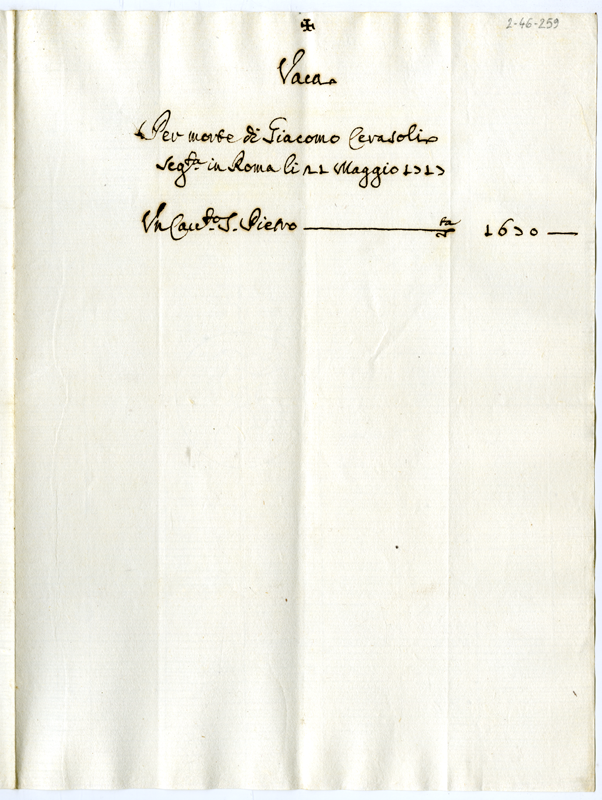 2-46-259
✠
Vaca
Per morte di Giacomo Cerasoli
seg.ta in Roma li 11 Maggio 1717
Un Cau.to S. Pietro ta 1630